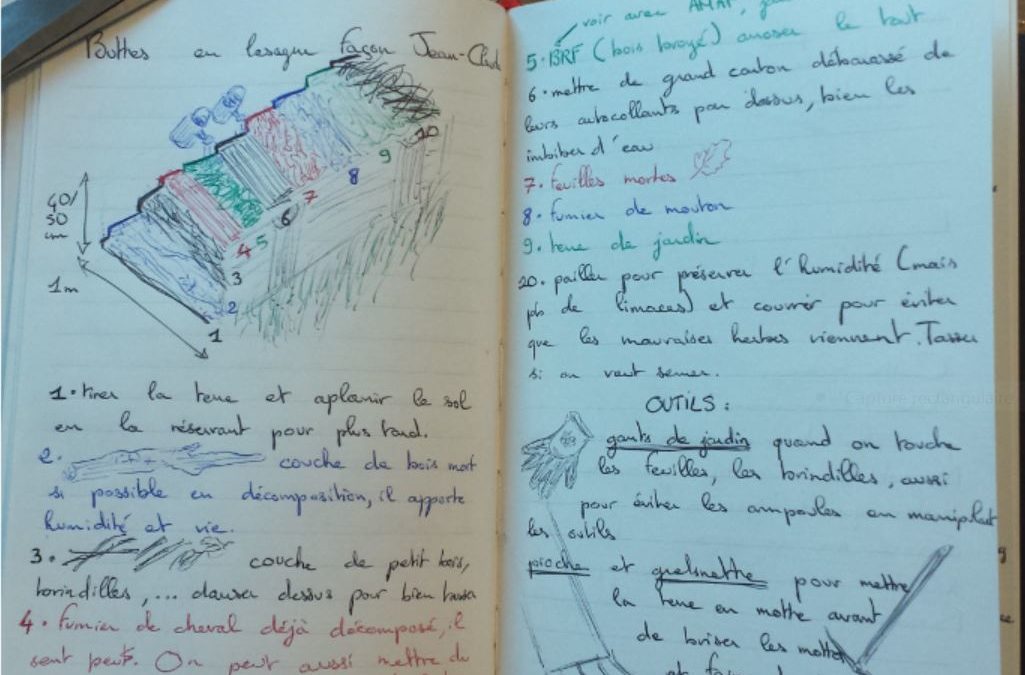 Buttes en lasagne façon Jean-Claude
40/
50
cm
1m
1
2
3
4
5
6
7
8
9
10
1. tirer la terre et aplanir le sol
en la réservant pour plus tard.
2. couche de bois mort
si possible en décomposition, il apporte
humidité et vie.
3. couche de petit bois,
brindilles,... danser dessus pour bien tasser
4. fumier de cheval déjà décomposé, il
sent peut. On peut aussi mettre du
voir avec AMAP,
5. BRF (bois broyé) arroser le tout
6. mettre de grand carton débarassé de
leurs autocollants par dessus, bien les
imbiber d'eau
7. feuilles mortes
8. fumier de mouton
9. terre de jardin
10. pailler pour préserver l'humidité (mais
pb de limaces) et couvrir pour éviter
que les mauvaises herbes viennent. Tasser
si on veut semer.
OUTILS :
gants de jardin quand on touche
les feuilles, les brindilles, aussi
pour éviter les ampoules en manipulant
les outils
pioche et grelinette pour mettre
la terre en motte avant
de briser les mottes
Capture rectangulaire